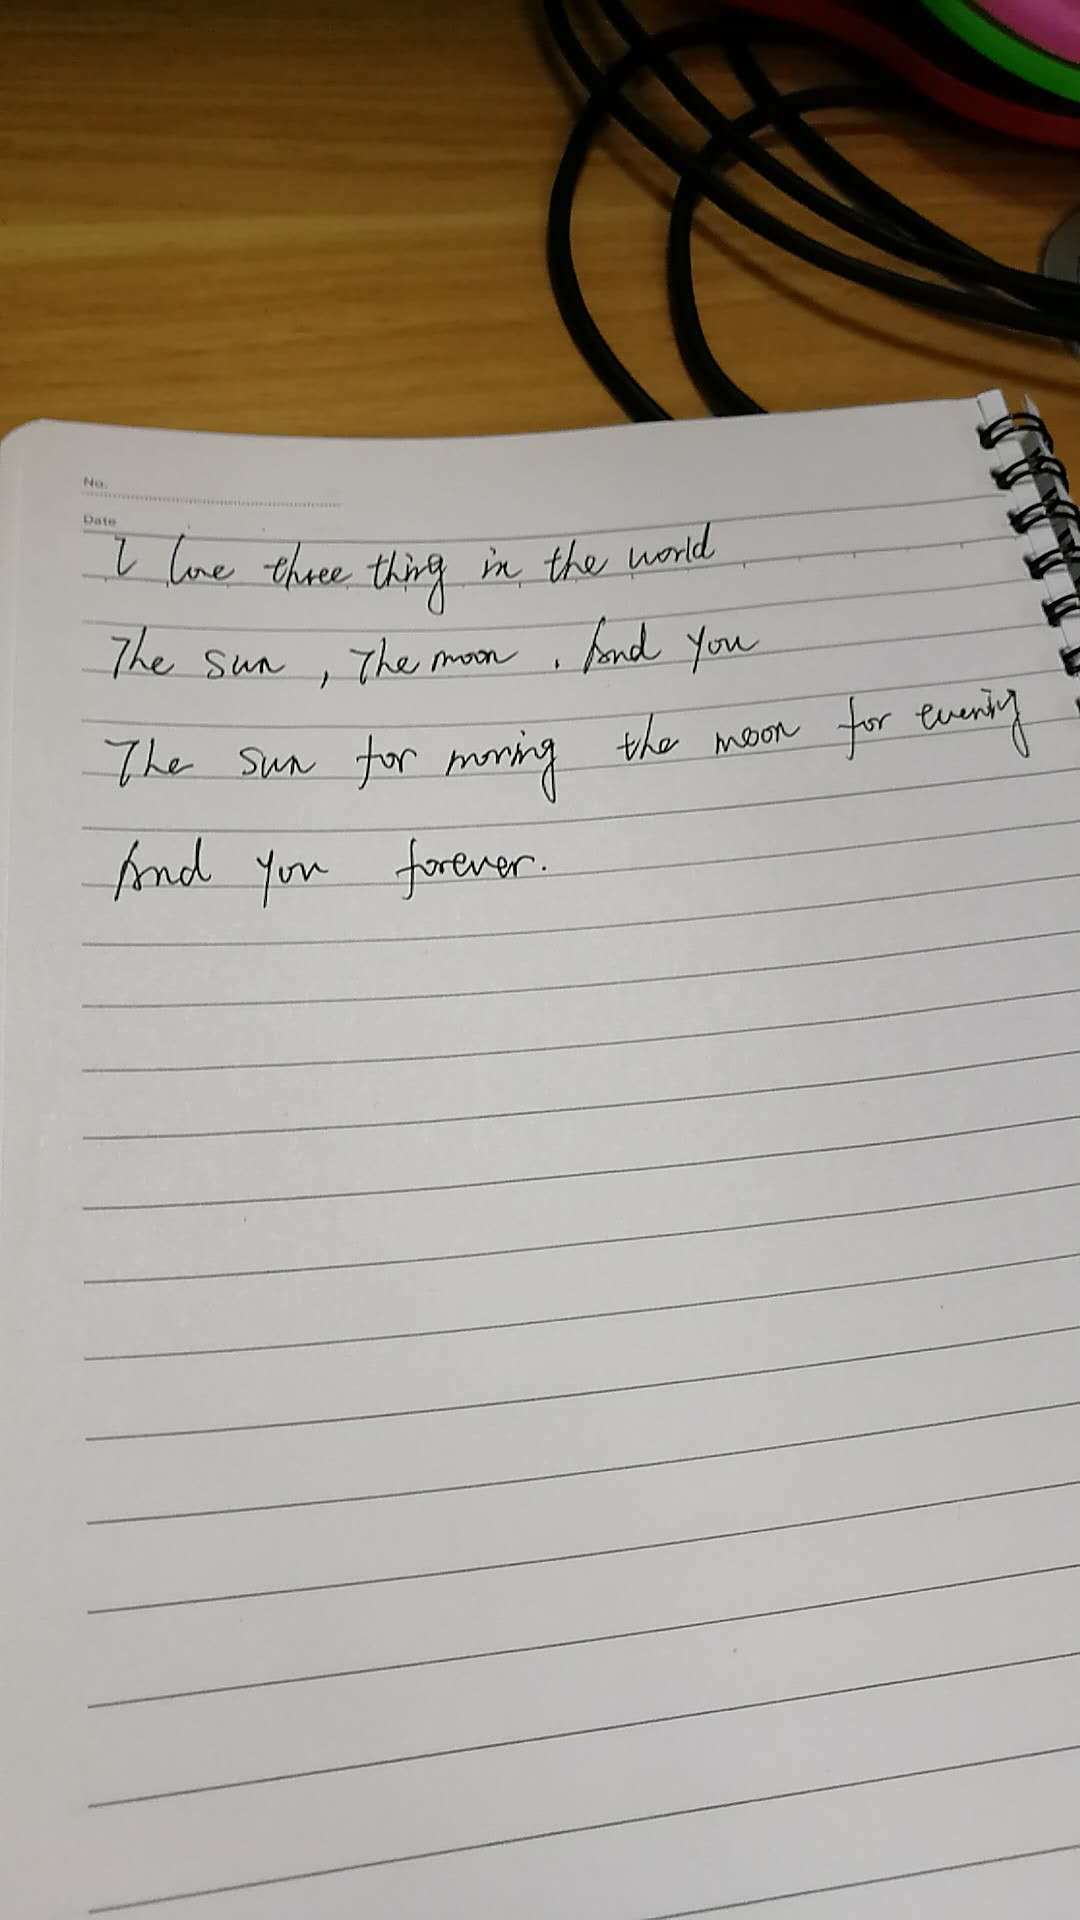 No.
Date
I love three thing in the world
The sun , The moon . And you
The sun for moring the moon for evenity
And you forever.